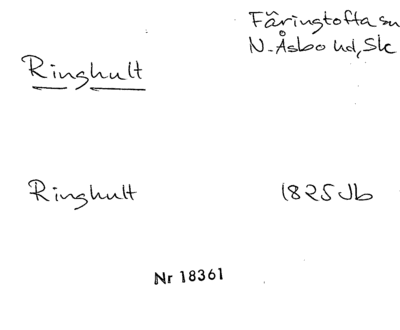 Färingtofta sn
N. Åsbo hd, Sk
Ringhult
Ringhult 1825 Jb
Nr 18361